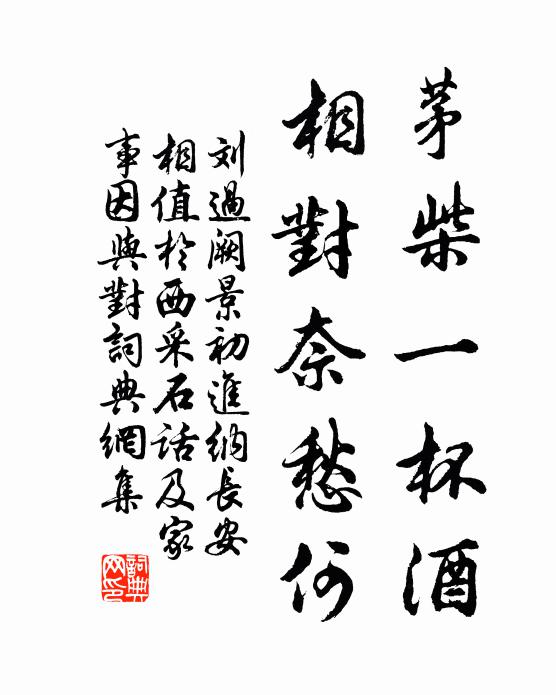 茅柴一杯酒
相對奈愁何
刘過闕景初進納長安
相值於西采石話及家
事因與對詞典網集
詞典網印